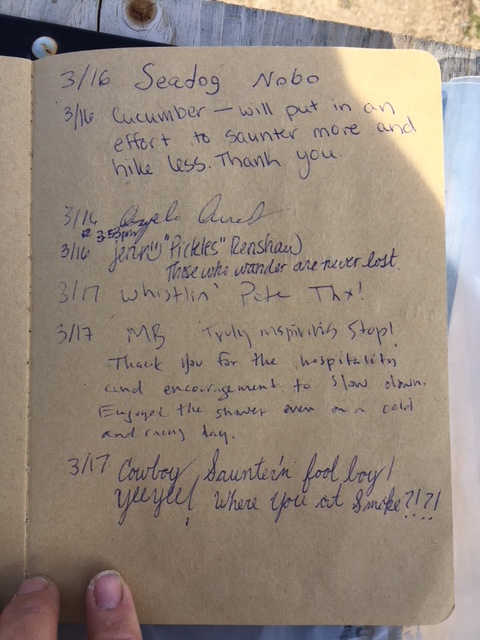 3/16 Seadog Nobo
3/16 Cucumber — will put in an
effort to saunter more and
hike less. Thank you.
3/16 Angela
@ 3:55pm
3/16 Jenn "Pickles" Renshaw
Those who wander are never lost.
3/17 Whistlin' Pete Thx!
3/17 MB Truly inspiring Stop!
Thank you for the hospitality
and encouragement to slow down.
Enjoyed the shower even on a cold
and rainy day.
3/17 Cowboy Saunterin fool boy!
YeeYee! Where you at Smoke?!?!